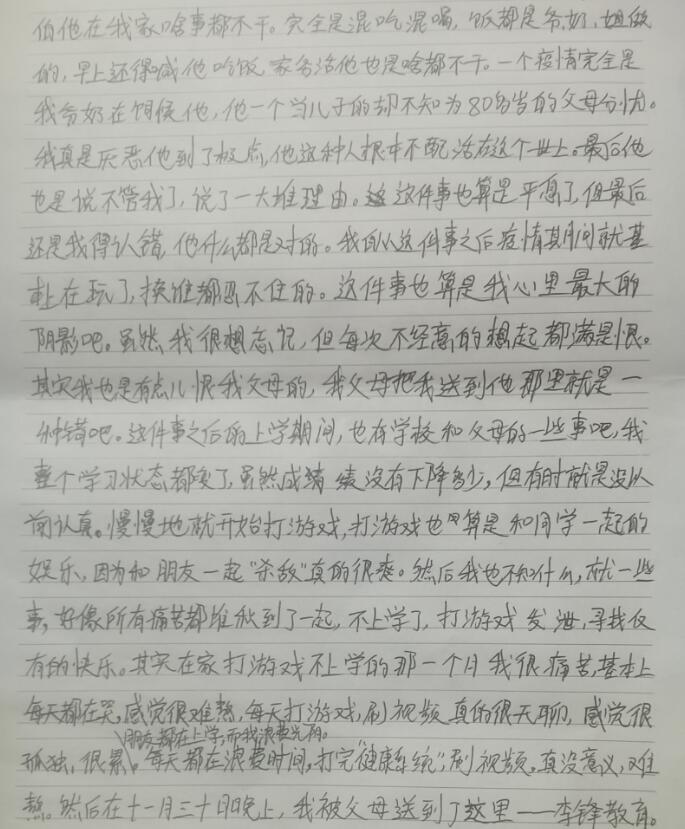 但他在我家啥事都不干。完全是混吃混喝，饭都是爷，奶，姐做
的，早上还得喊他吃饭，家务活他也是啥都不干。一个疫情完全是
我爷奶在伺候他，他一个当儿子的却不知为80多岁的父母分忧。
我真是厌恶他到了极点，他这种人根本不配活在这个世上。最后他
也是说不管我了，说了一大堆理由。这件事也算是平息了，但最后
还是我得认错，他什么都是对的。我自从这件事之后疫情其间就基
本上在玩了，换谁都忍不住的。这件事也算是我心里最大的
阴影吧。虽然我很想忘记，但每次不经意的想起都满是恨。
其实我也是有点儿恨我父母的，我父母把我送到他那里就是一
种错吧。这件事之后的上学期间，也有学校和父母的一些事吧，我
整个学习状态都变了，虽然成绩没有下降多少，但有时就是没从
前认真。慢慢地就开始打游戏，打游戏也算是和同学一起的
娱乐，因为和朋友一起“杀敌”真的很爽。然后我也不知什么，就一些
事，好像所有痛苦都堆积到了一起，不上学了，打游戏发泄，寻找仅
有的快乐。其实在家打游戏不上学的那一个月我很痛苦，基本上
每天都在哭，感觉很难熬，每天打游戏，刷视频真的很无聊，感觉很
朋友都在上学，而我浪费光阴。
孤独，很累。每天都在浪费时间，打完“健康系统”，刷视频。真没意义，难
熬。然后在十一月三十日晚上，我被父母送到了这里——李锋教育。